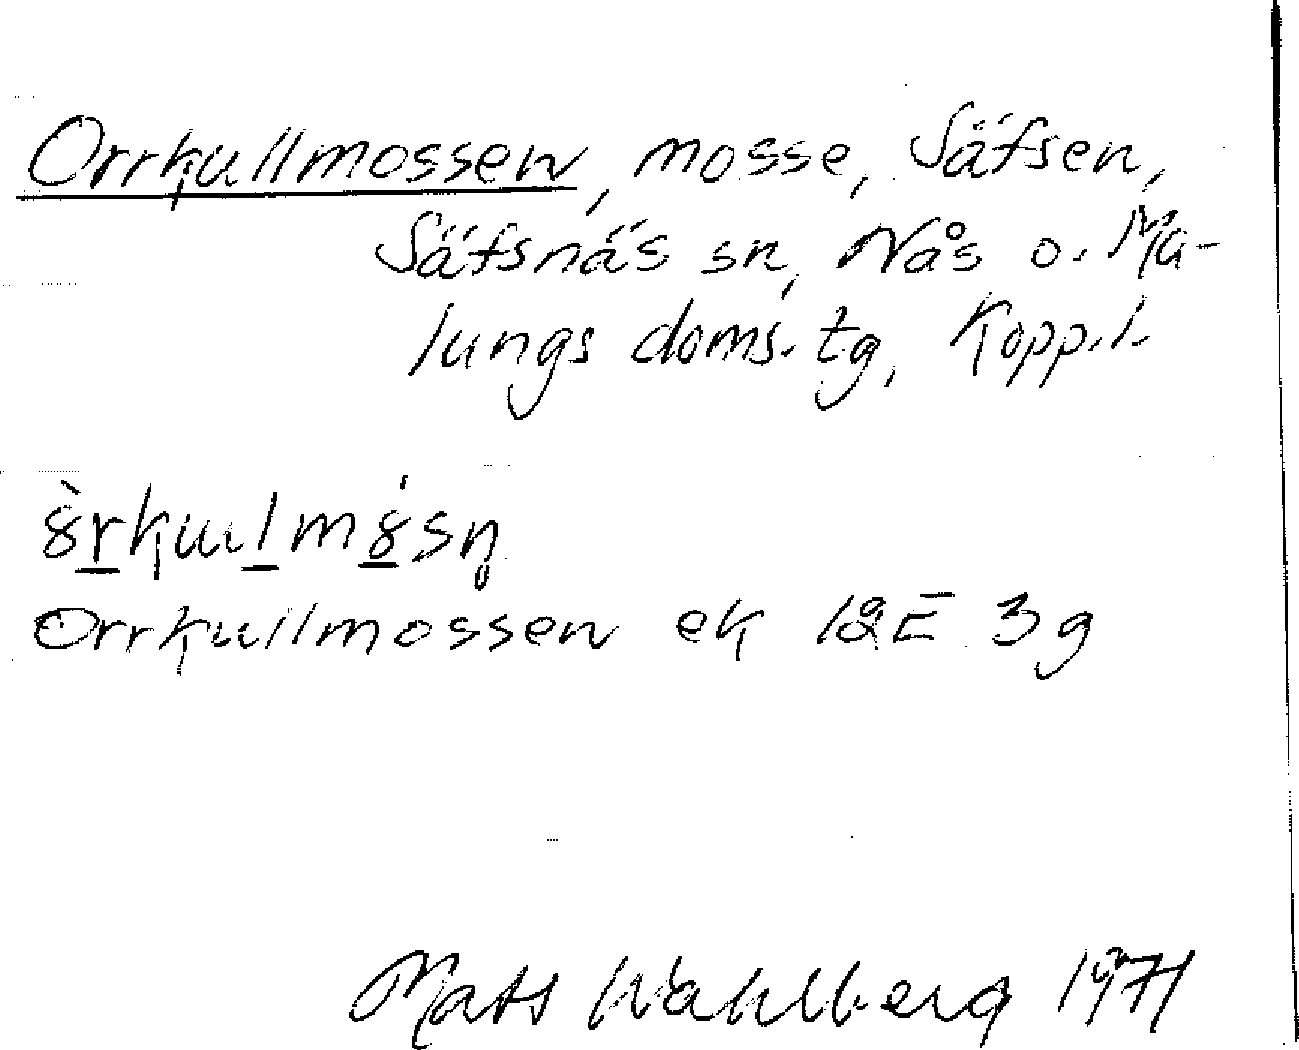 Orrkullmossen, mosse, Säfsen,
Säfsnäs sn, Nås o. Ma-
lungs doms. tg, Kopp. l.
Orrkullmossen ek 12E 3g
Mats Wahlberg 1971